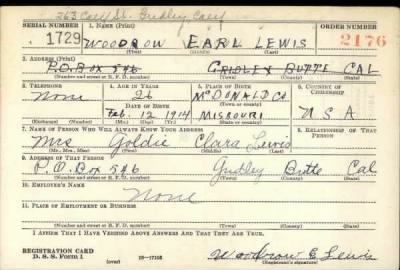 363 St. Gridley Calif
SERIAL NUMBER 1. NAME (Print) ORDER NUMBER
1729 WOODROW EARL LEWIS 2176
(First) (Middle) (Last)
2. ADDRESS (Print)
P.O. BOX 546 GRIDLEY BUTTE CAL
(Number and street or R. F. D. number) (Town) (County) (State)
3. TELEPHONE 4. AGE IN YEARS 5. PLACE OF BIRTH 6. COUNTRY OF CITIZENSHIP
None 26 McDONALD CO
DATE OF BIRTH (Town or county)
Feb. 12 1914 MISSOURI U S A
(Exchange) (Number) (Mo.) (Day) (Yr.) (State or country)
7. NAME OF PERSON WHO WILL ALWAYS KNOW YOUR ADDRESS 8. RELATIONSHIP OF THAT PERSON
Mrs Goldie Clara Lewis
(Mr., Mrs., Miss) (First) (Middle) (Last)
9. ADDRESS OF THAT PERSON
P.O. Box 546 Gridley Butte Cal
(Number and street or R. F. D. number) (Town) (County) (State)
10. EMPLOYER'S NAME
None
11. PLACE OF EMPLOYMENT OR BUSINESS
(Number and street or R. F. D. number) (Town) (County) (State)
I AFFIRM THAT I HAVE VERIFIED ABOVE ANSWERS AND THAT THEY ARE TRUE.
REGISTRATION CARD
D. S. S. Form 1 16—17105 Woodrow E Lewis
(over) (Registrant's signature)